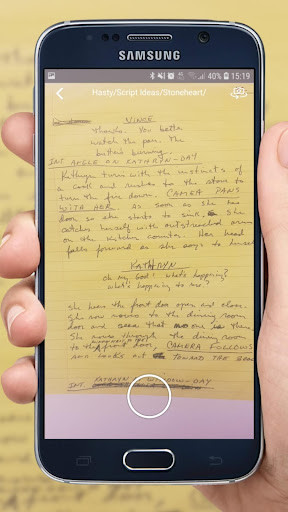 SAMSUNG
40% 15:19
Hasty/Script Ideas/Stoneheart/
VINCE
Thanks. You betta
watch the pan. The
butta's burning...
INT. ANGLE ON KATHRYN-DAY
Kathryn turn with the instincts of
a cook and rushes to the stove to
turn the fire down. CAMERA PANS
WITH HER. As soon as she has
done so she starts to sink. She
catches herself with outstretched arms
on the kitchen counter. Her head
falls forward as she says to herself
KATHRYN
oh my God! What's happening?
what's happening to me?
She hears the front door open and close.
She now moves to the dining room
door and sees that no one is there.
She moves through the dining room
to the front door, CAMERA FOLLOWS
and looks out TOWARD THE
INT. KATHRYN - DAY